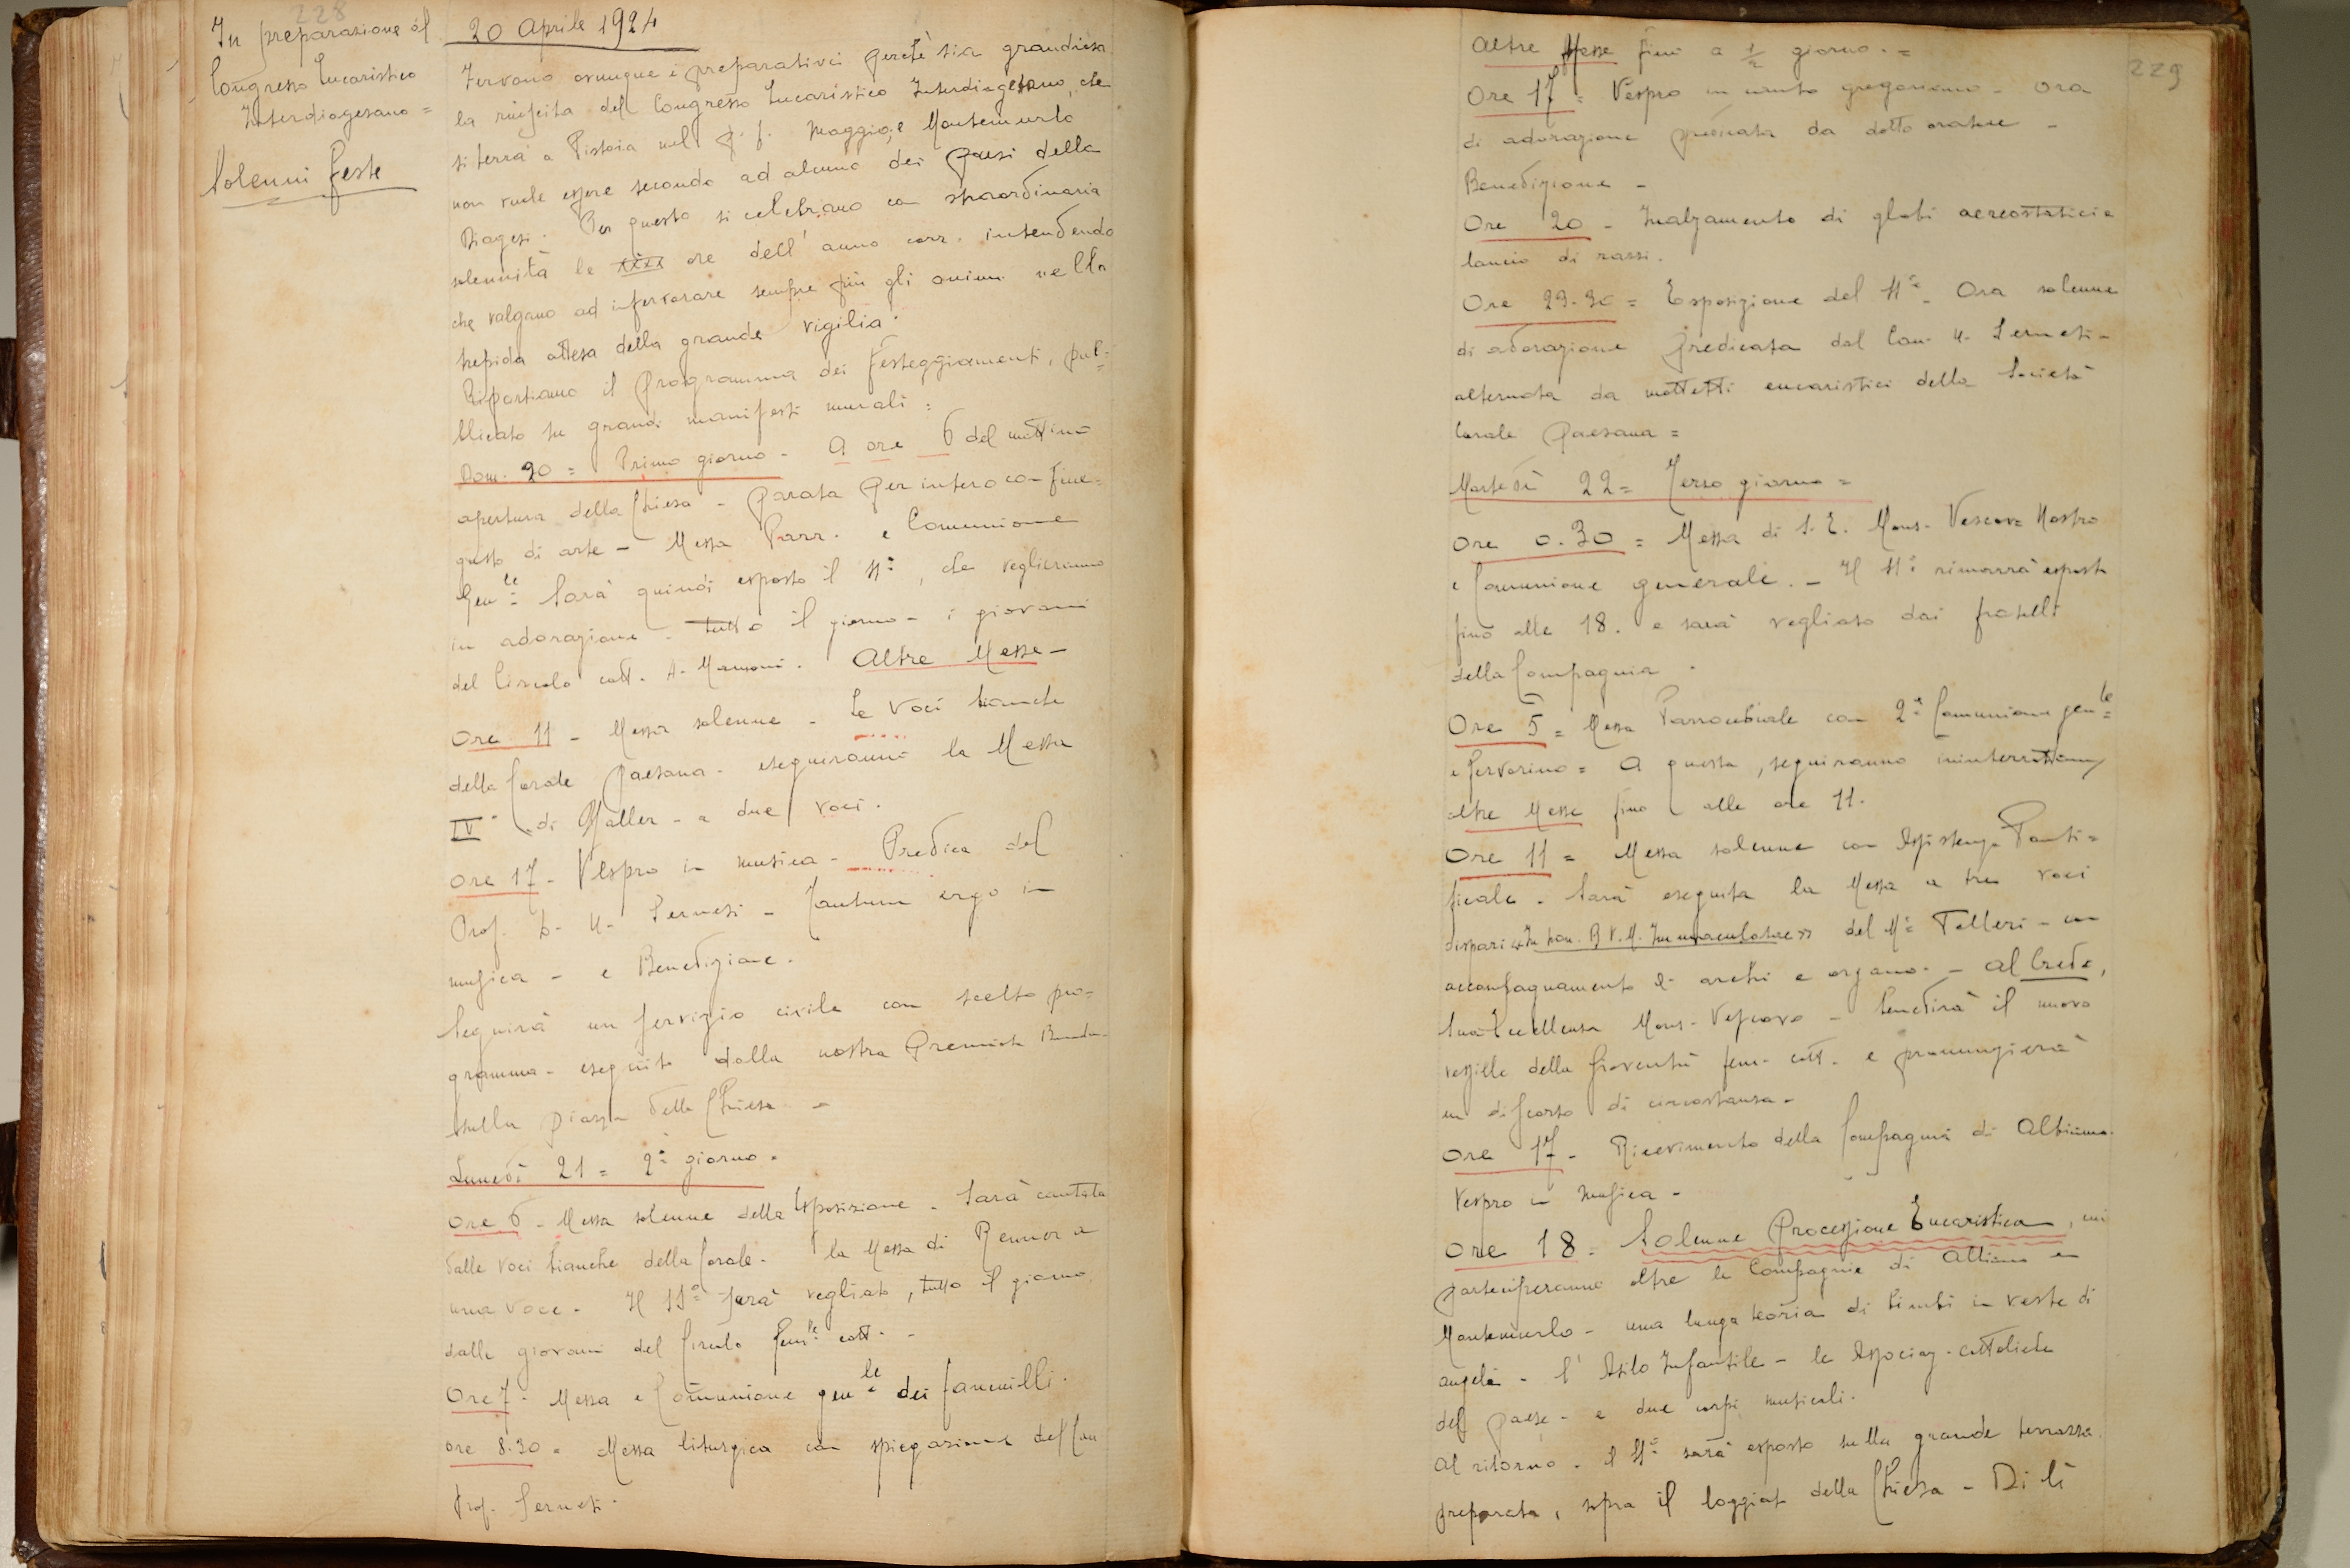 228
In preparazione al
Congresso Eucaristico
Interdiogesano =
Solenni feste
20 Aprile 1924
Fervono ovunque i preparativi perchè sia grandiosa
la riuscita del Congresso Eucaristico Interdiogesano, che
si terrà a Pistoia nel p. f. Maggio, e Montemurlo
non vuole essere secondo ad alcuno dei paesi della
Diogesi. Per questo si celebrano con straordinaria
solennità le xxxx ore dell'anno corr. intendendo
che valgano ad infervorare sempre più gli animi nella
trepida attesa della grande vigilia.
Riportiamo il programma dei festeggiamenti, pub=
blicato su grandi manifesti murali =
Dom. 20 = Primo giorno - A ore 6 del mattino
apertura della Chiesa - parata per intero con fine=
gusto di arte - Messa Parr. e Comunione
Genle Sarà quindi esposto il SSo, che veglieranno
in adorazione - tutto il giorno - i giovani
del Circolo catt. A. Manzoni. Altre Messe -
Ore 11 - Messa solenne - Le Voci bianche
della Corale paesana - eseguiranno la Messa
IVa di Haller - a due voci.
Ore 17 - Vespro in musica - Predica del
Prof. D. U. Sernesi - Tantum ergo in
musica - e Benedizione.
Seguirà un servizio civile con scelto pro=
gramma - eseguito dalla nostra Premiata Banda -
sulla piazza della Chiesa -
Lunedì 21 = 2o giorno.
Ore 6 - Messa solenne della Esposizione - Sarà cantata
dalle voci bianche della Corale - la Messa di Renner a
una voce. Il SSo sarà vegliato, tutto il giorno
dalle giovani del Circolo Femle catt. -
Ore 7 - Messa e Comunione genle dei fanciulli.
Ore 8.30 = Messa liturgica con spiegazione del Can
Prof. Sernesi.
229
Altre Messe fino a 1/2 giorno. =
Ore 17 = Vespro in canto gregoriano - Ora
di adorazione predicata da dotto oratore -
Benedizione -
Ore 20 - Inalzamento di globi aereostatici e
lancio di razzi.
Ore 23.30 = Esposizione del SSo - Ora solenne
di adorazione predicata dal Can. U. Sernesi -
alternata da mottetti eucaristici della Società
Corale paesana =
Martedì 22 = Terzo giorno =
Ore 0.30 = Messa di S. E. Mons. Vescovo Nostro
e Comunione generale. - Il SSo rimarrà esposto
fino alle 18. e sarà vegliato dai fratelli
della Compagnia.
Ore 5 = Messa Parrocchiale con 2a Comunione genle
e fervorino = A questa, seguiranno ininterrottamente
altre Messe fino alle ore 11.
Ore 11 = Messa solenne con Assistenza Ponti=
ficale. Sarà eseguita la Messa a tre voci
dispari «In hon. B. V. M. Immaculatae» del Mo Folleri - con
accompagnamento di archi e organo. - Al Credo,
Sua Eccellenza Mons. Vescovo - benedirà il nuovo
vessillo della Gioventù fem. catt. e pronunzierà
un discorso di circostanza -
Ore 17 - Ricevimento della Compagnia di Albiano.
Vespro in musica -
Ore 18 = Solenne Processione Eucaristica, cui
parteciperanno oltre le Compagnie di Albiano e
Montemurlo - una lunga teoria di bimbi in veste di
angeli - l'Asilo Infantile - le Associaz. cattoliche
del paese - e due corpi musicali.
Al ritorno - il SSo sarà esposto sulla grande terrazza
preparata, sopra il loggiato della Chiesa - Di lì